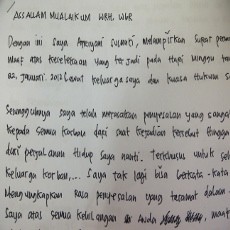 ASSALAM MUALAIKUM WRH. WBR
Dengan ini saya Apriyani Susanti, melampirkan surat perm
maaf atas kecelakaan yang terjadi pada hari minggu tan
22, Januari. 2012 lewat keluarga saya dan kuasa hukum sa
Sesungguhnya saya telah merasakan penyesalan yang sanga
kepada semua korban dari saat kejadian tersebut hingga
dari perjalanan hidup saya nanti. Terkhusus untuk sel
keluarga korban,... Saya tak lagi bisa berkata-kata
Mengungkapkan Rasa penyesalan yang teramat dalam
saya atas semua kehilangan anda maut